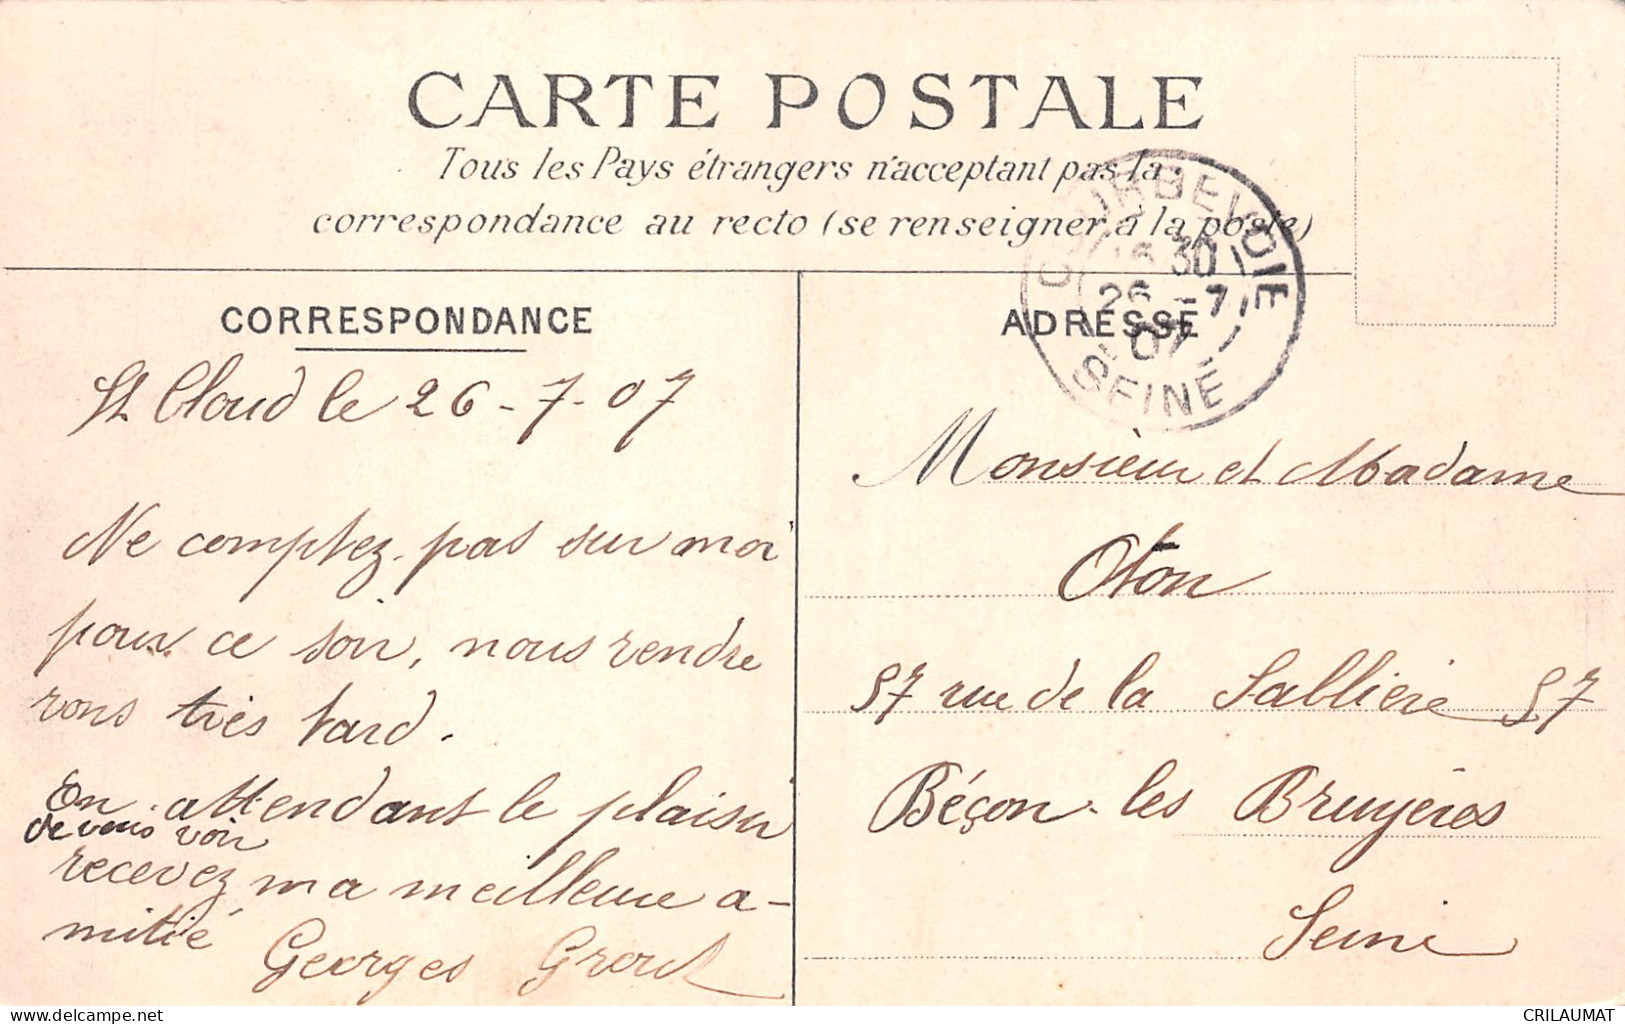 CARTE POSTALE
Tous les Pays étrangers n'acceptant pas la
correspondance au recto (se renseigner à la poste)
CORRESPONDANCE
St Cloud le 26-7-07
Ne comptez pas sur moi
pour ce soir, nous rendre
rons très tard.
En attendant le plaisir
de vous voir
recevez ma meilleure a-
mitié
Georges
ADRESSE
COURBEVOIE
30
26 -7
07
SEINE
Monsieur et Madame
Oton
57 rue de la Sablière 57
Bécon-les Bruyères
Seine
delcampe.net
CRILAUMAT